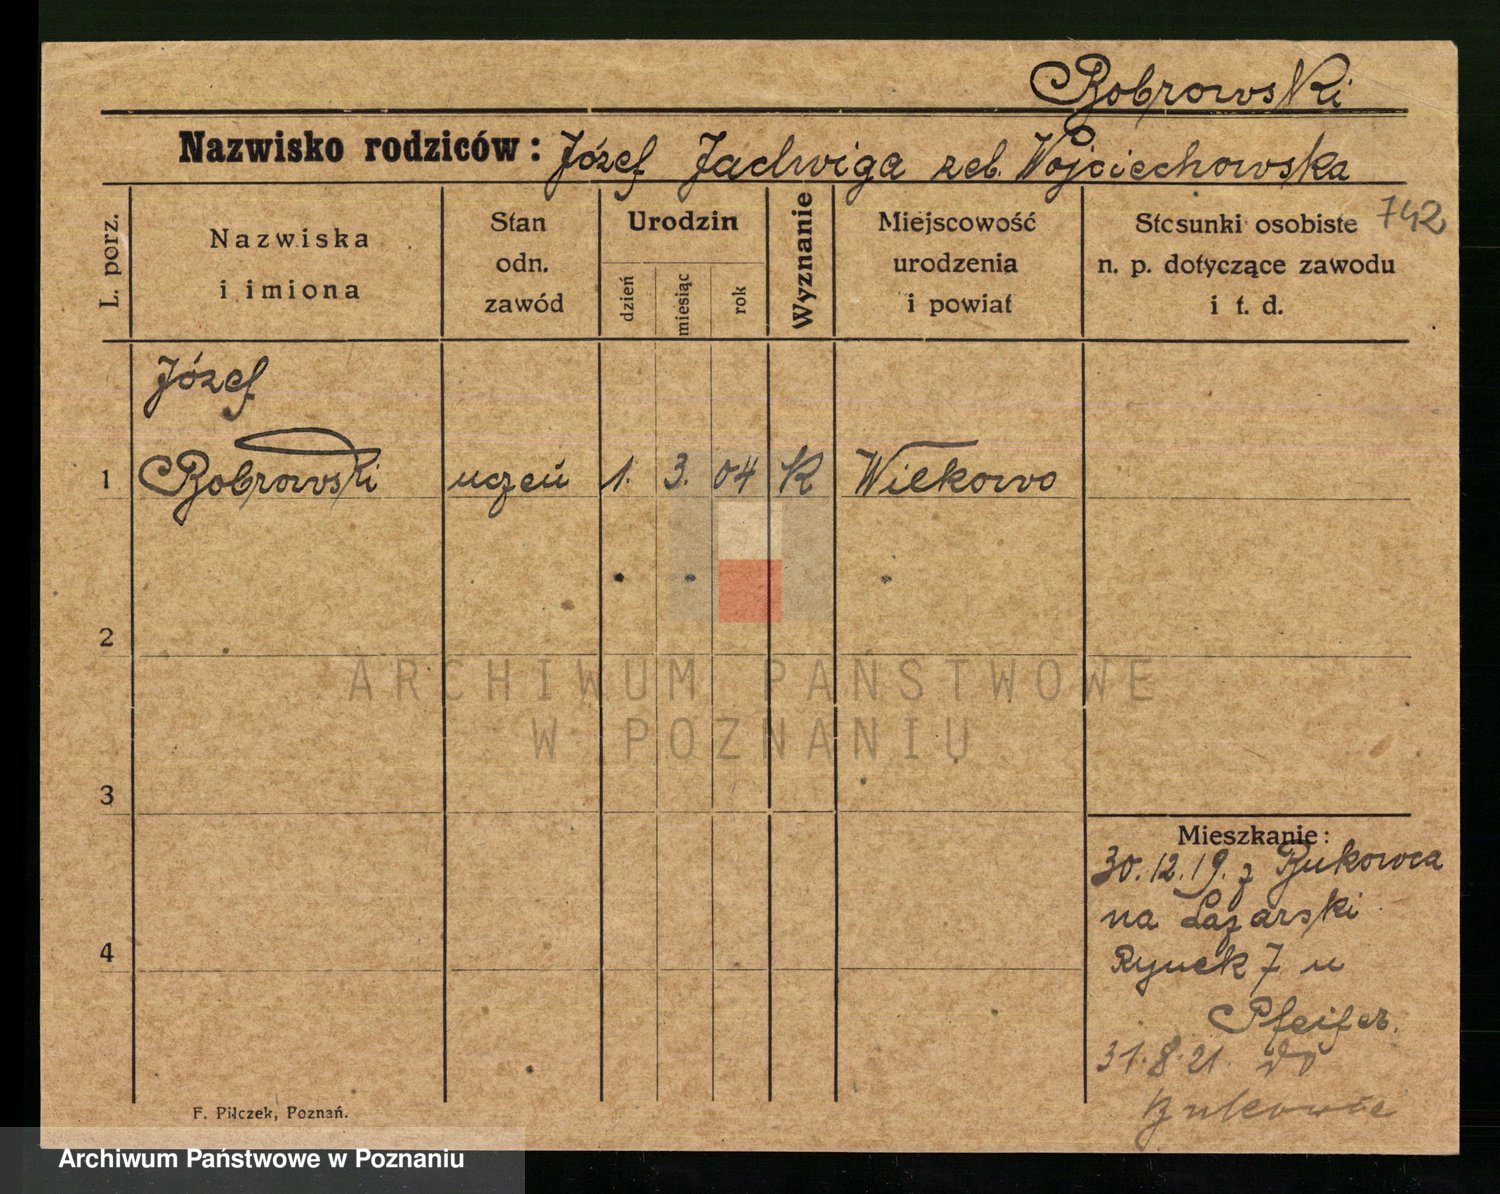 Bobrowski
Nazwisko rodziców: Józef Jadwiga zeb. Wojciechowska
742
L. porz.
Nazwiska
i imiona
Stan
odn.
zawód
Urodzin
dzień
miesiąc
rok
Wyznanie
Miejscowość
urodzenia
i powiat
Stosunki osobiste
n. p. dotyczące zawodu
i t. d.
Józef
1 Bobrowski uczeń 1. 3. 04 K Wilkowo
2
ARCHIWUM PAŃSTWOWE
W POZNANIU
3
Mieszkanie:
30.12.19. z Bukowca
na Łazarski
4
Rynek 7 u
Pfeifer.
31.8.21. do
F. Pilczek, Poznań.
Archiwum Państwowe w Poznaniu